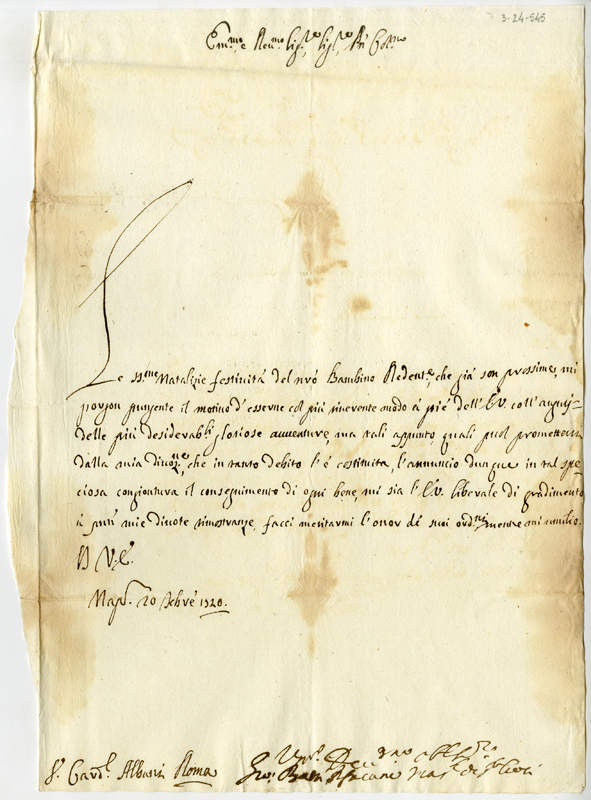 3-24-545
Em.mo e Reu.mo Sig.re, Sig.re Pn Col.mo
Le SS.me Natalizie festiuità del nr̃o Bambino Redent.e, che già son prossime, mi
porgon pungente il motiuo d'esserne col più riuerente modo à piè dell'E.V. coll'augurj=
delle più desiderab.li gloriose auuenture, ma tali appunto, quali può promettersi
dalla mia diuoz.ne, che in tanto debito l'è costituita, l'annuncio dunque in tal spe=
ciosa congiontura il conseguimento di ogni bene, mi sia l'E.V. liberale di gradimento
à mie diuote rimostranze, facci meritarmi l'onor de suoi ord.ni, mentre mi umilio.
D V.E.
Nap. 20 Xbre 1720.
S.r Card.l Albani Roma
Um. Deu. ed obb. Ser.